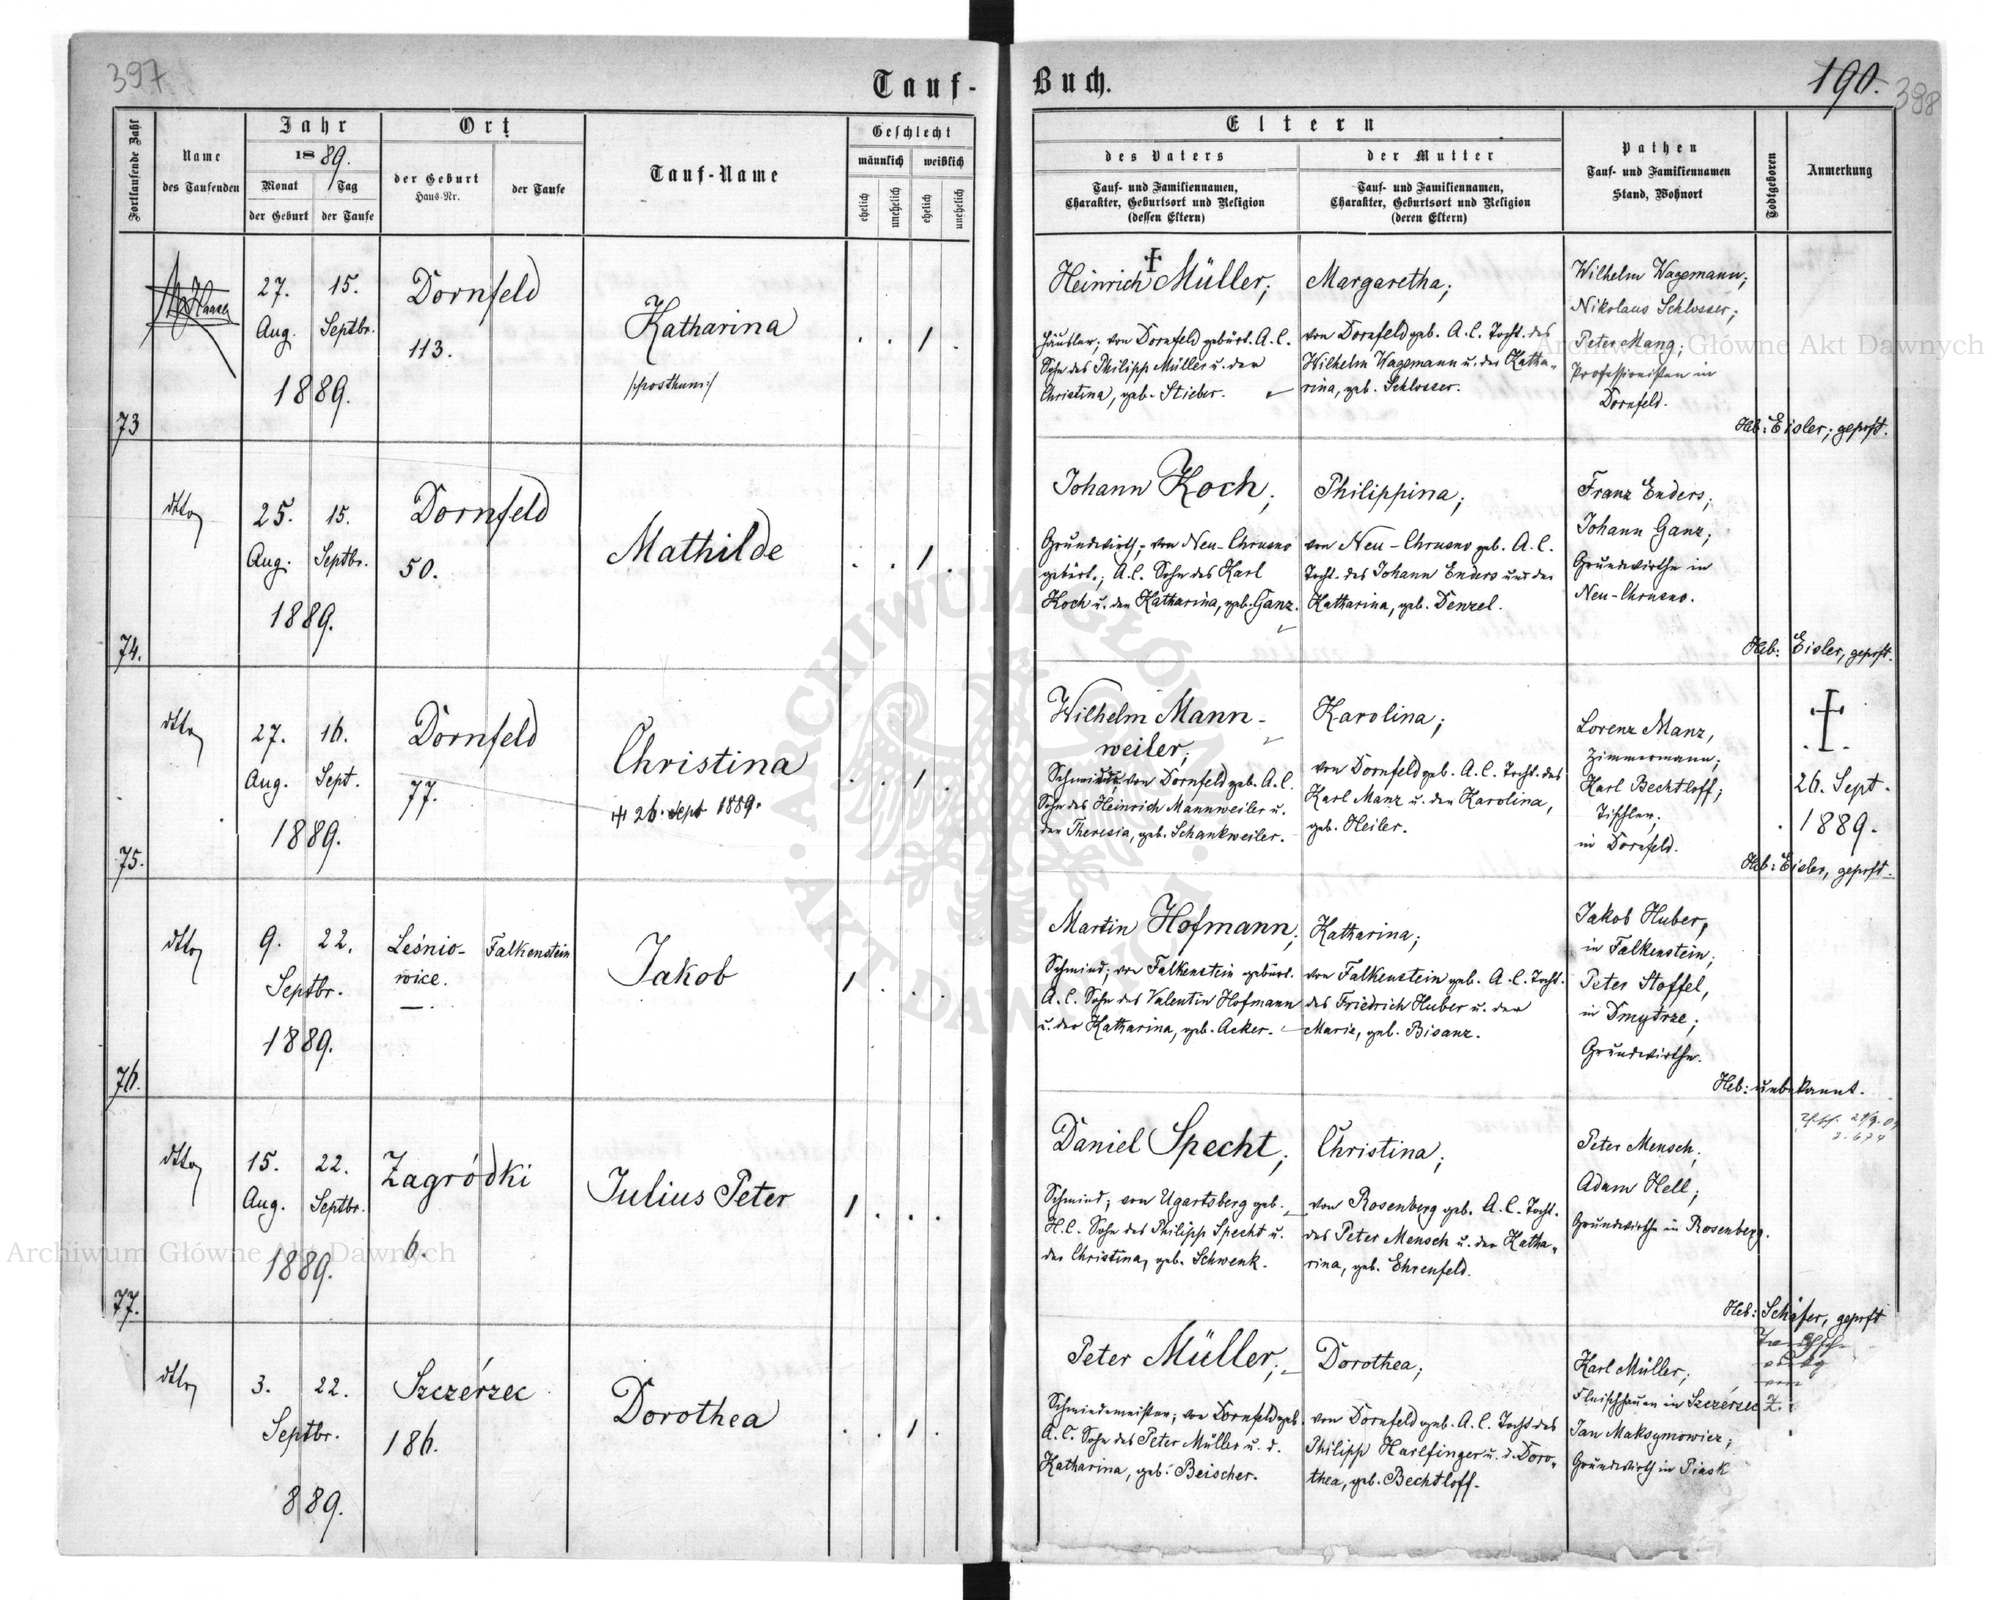 397
Tauf-
Buch.
190.
398
Fortlaufende Zahl
Name
des Taufenden
Jahr
1889.
Monat
Tag
der Geburt
der Taufe
Ort
der Geburt
Haus-Nr.
der Taufe
Tauf-Name
Geschlecht
männlich
weiblich
ehelich
unehelich
ehelich
unehelich
Eltern
des Vaters
Tauf- und Familiennamen,
Charakter, Geburtsort und Religion
(dessen Eltern)
der Mutter
Tauf- und Familiennamen,
Charakter, Geburtsort und Religion
(deren Eltern)
Pathen
Tauf- und Familiennamen
Stand, Wohnort
Todtgeboren
Anmerkung
73
27. 15.
Aug. Septbr.
1889.
Dornfeld
113.
Katharina
/:posthum:/
. . 1 .
Heinrich † Müller;
Häusler; von Dornfeld gebürt. A.C.
Sohn des Philipp Müller u. der
Christina, geb. Stieber.
Margaretha;
von Dornfeld geb. A.C. Tocht. des
Wilhelm Wagemann u. der Katha-
rina, geb. Schlosser.
Wilhelm Wagemann;
Nikolaus Schlosser;
Peter Mang;
Professionisten in
Dornfeld.
Heb: Eisler; geprft.
74.
dtto
25. 15.
Aug. Septbr.
1889.
Dornfeld
50.
Mathilde
. . 1 .
Johann Koch;
Grundwirth; von Neu-Chrusno
gebürt.; A.C. Sohn des Karl
Koch u. der Katharina, geb. Ganz.
Philippina;
von Neu-Chrusno geb. A.C.
Tocht. des Johann Enders und der
Katharina, geb. Denzel.
Franz Enders;
Johann Ganz;
Grundwirthe in
Neu-Chrusno.
Heb: Eisler, geprft.
75.
dtto
27. 16.
Aug. Sept.
1889.
Dornfeld
77.
Christina
26. Sept 1889.
. . 1 .
Wilhelm Mann-
weiler;
Schmied; von Dornfeld geb. A.C.
Sohn des Heinrich Mannweiler u.
der Theresia, geb. Schankweiler.
Karolina;
von Dornfeld geb. A.C. Tocht. des
Karl Manz u. der Karolina,
geb. Heiler.
Lorenz Manz,
Zimmermann;
Karl Bechtloff;
Tischler;
in Dornfeld.
†
26. Sept.
1889.
Heb: Eisler, geprft.
76.
dtto
9. 22.
Septbr.
1889.
Leśnio-
wice.
—.
Falkenstein
Jakob
1 . . .
Martin Hofmann;
Schmied; von Falkenstein gebürt.
A.C. Sohn des Valentin Hofmann
u. der Katharina, geb. Acker.
Katharina;
von Falkenstein geb. A.C. Tocht.
des Friedrich Huber u. der
Marie, geb. Bisanz.
Jakob Huber,
in Falkenstein;
Peter Stoffel,
in Dmytrze;
Grundwirthe.
Heb: unbekannt.
77.
dtto
15. 22.
Aug. Septbr.
1889.
Zagródki
6.
Julius Peter
1 . . .
Daniel Specht;
Schmied; von Ugartsberg geb.
H.C. Sohn des Philipp Specht u.
der Christina, geb. Schwenk.
Christina;
von Rosenberg geb. A.C. Tocht.
des Peter Mensch u. der Katha-
rina, geb. Ehrenfeld.
Peter Mensch,
Adam Hell;
Grundwirthe in Rosenberg.
Heb: Schäfer, geprft
dtto
3. 22.
Septbr.
889.
Szczérzec
186.
Dorothea
. . 1 .
Peter Müller;
Schmiedemeister; von Dornfeld geb.
A.C. Sohn des Peter Müller u. d.
Katharina, geb. Beischer.
Dorothea;
von Dornfeld geb. A.C. Tocht. des
Philipp Harlfinger u. d. Doro-
thea, geb. Bechtloff.
Karl Müller;
Fleischhauer in Szczérzec
Jan Maksymowicz;
Grundwirth in Piask
Archiwum Główne Akt Dawnych
Archiwum Główne Akt Dawnych
ARCHIWUM GŁÓWNE AKT DAWNYCH